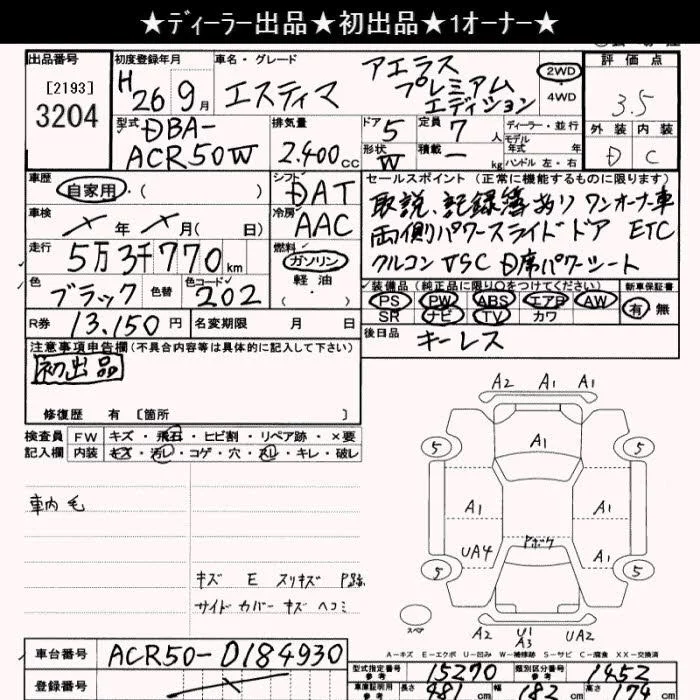 ★ディーラー出品★初出品★1オーナー★
出品番号 初度登録年月 車名・グレード 評価点
[2193] 3204
H 26年 9月 エスティマ アエラス プレミアム エディション
2WD 4WD
3.5
外装 内装
D C
型式 DBA-ACR50W 排気量 2.400cc ドア 5 形状 W 定員 7人 積載 ー kg
ディーラー・並行
モデル年式 年式
ハンドル 左・右
車歴 自家用・( )
シフト DAT
セールスポイント (正常に機能するものに限ります)
取説、記録簿あり ワンオーナー車
両側パワースライドドア ETC
クルコン VSC D席パワーシート
車検 年 月( 日) 冷房 AAC
走行 5万3千770km 燃料 ガソリン・軽油
( )
色 ブラック 色替 色コード 202
装備品(純正品に限り○をつけてください) 新車保証書
PS PW ABS エアB AW 有 無
SR ナビ TV カワ
R券 13,150円 名変期限 月 日
後日品 キーレス
注意事項申告欄(不具合内容等は具体的に記入して下さい)
初出品
修復歴 有 [箇所 ]
検査員 FW キズ・飛石・ヒビ割・リペア跡・×要
記入欄 内装 キズ・汚レ・コゲ・穴・スレ・キレ・破レ
車内 毛
キズ E スリキズ P跡
サイドカバー キズ ヘコミ
A2 A1 A1
5 A1 5
A1 A1
UA4 Pボケ A1
5 5
スペア A2 U1 A3 UA2
A-キズ E-エクボ U-凹み W-補修跡 S-サビ C-腐食 XX-交換済
車台番号 ACR50-0184930
型式指定番号 参考 15270 類別区分番号 参考 1452
登録番号
車庫証明用 参考 長さ 481cm 幅 182cm 高さ 174cm